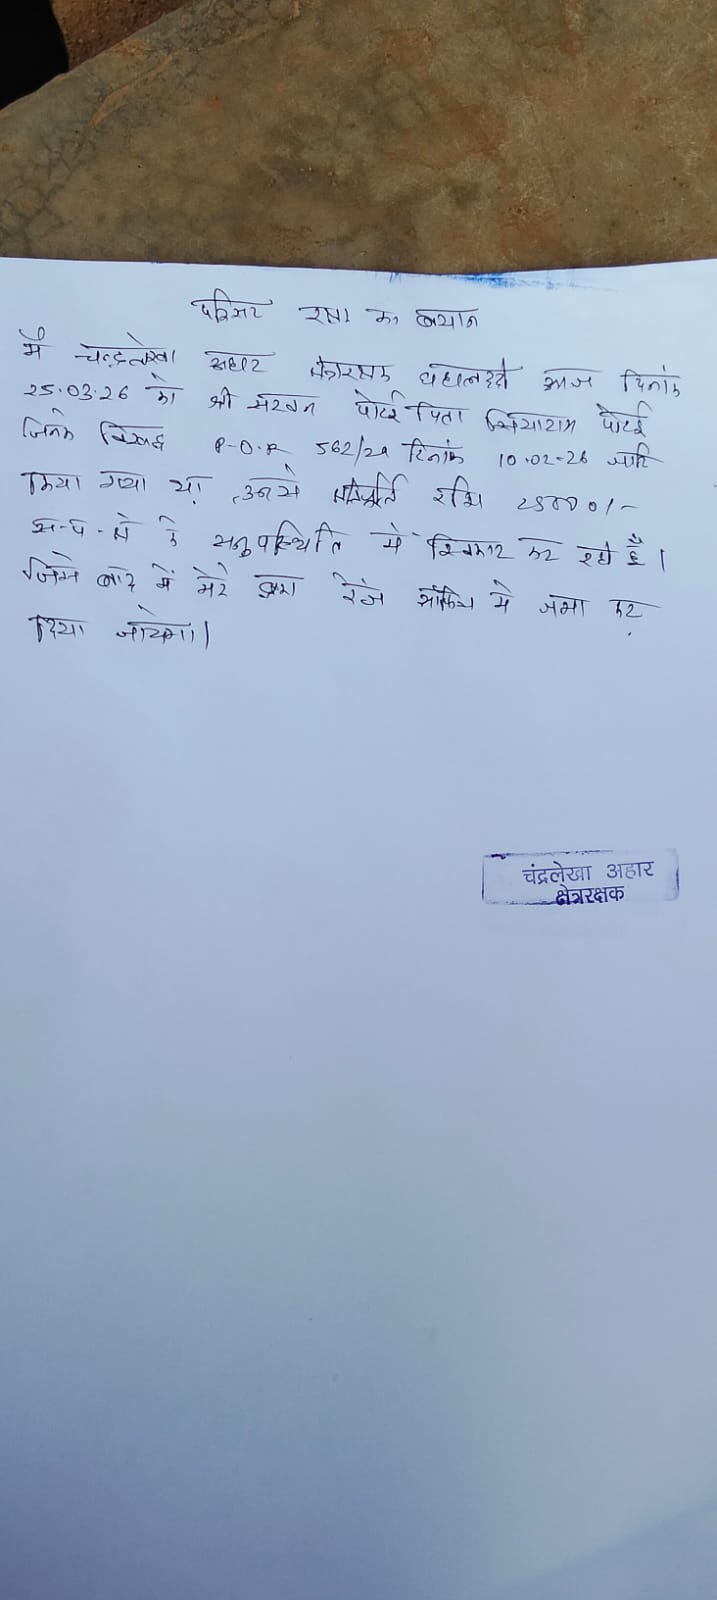 परिसर रक्षक का बयान
मैं चन्द्रलेखा अहार क्षेत्ररक्षक आज दिनांक
25.03.26 को श्री सरवन पोर्ते पिता सियाराम पोर्ते
जिनके विरूद्ध P-O-R 562/21 दिनांक 10.02-26 जारी
किया गया था, उनसे क्षतिपूर्ति राशि
के अनुपस्थिति में स्विकार कर रही है।
जिसे बाद में मेरे द्वारा रेंज ऑफिस में जमा कर
दिया जायेगा।
चंद्रलेखा अहार
क्षेत्ररक्षक